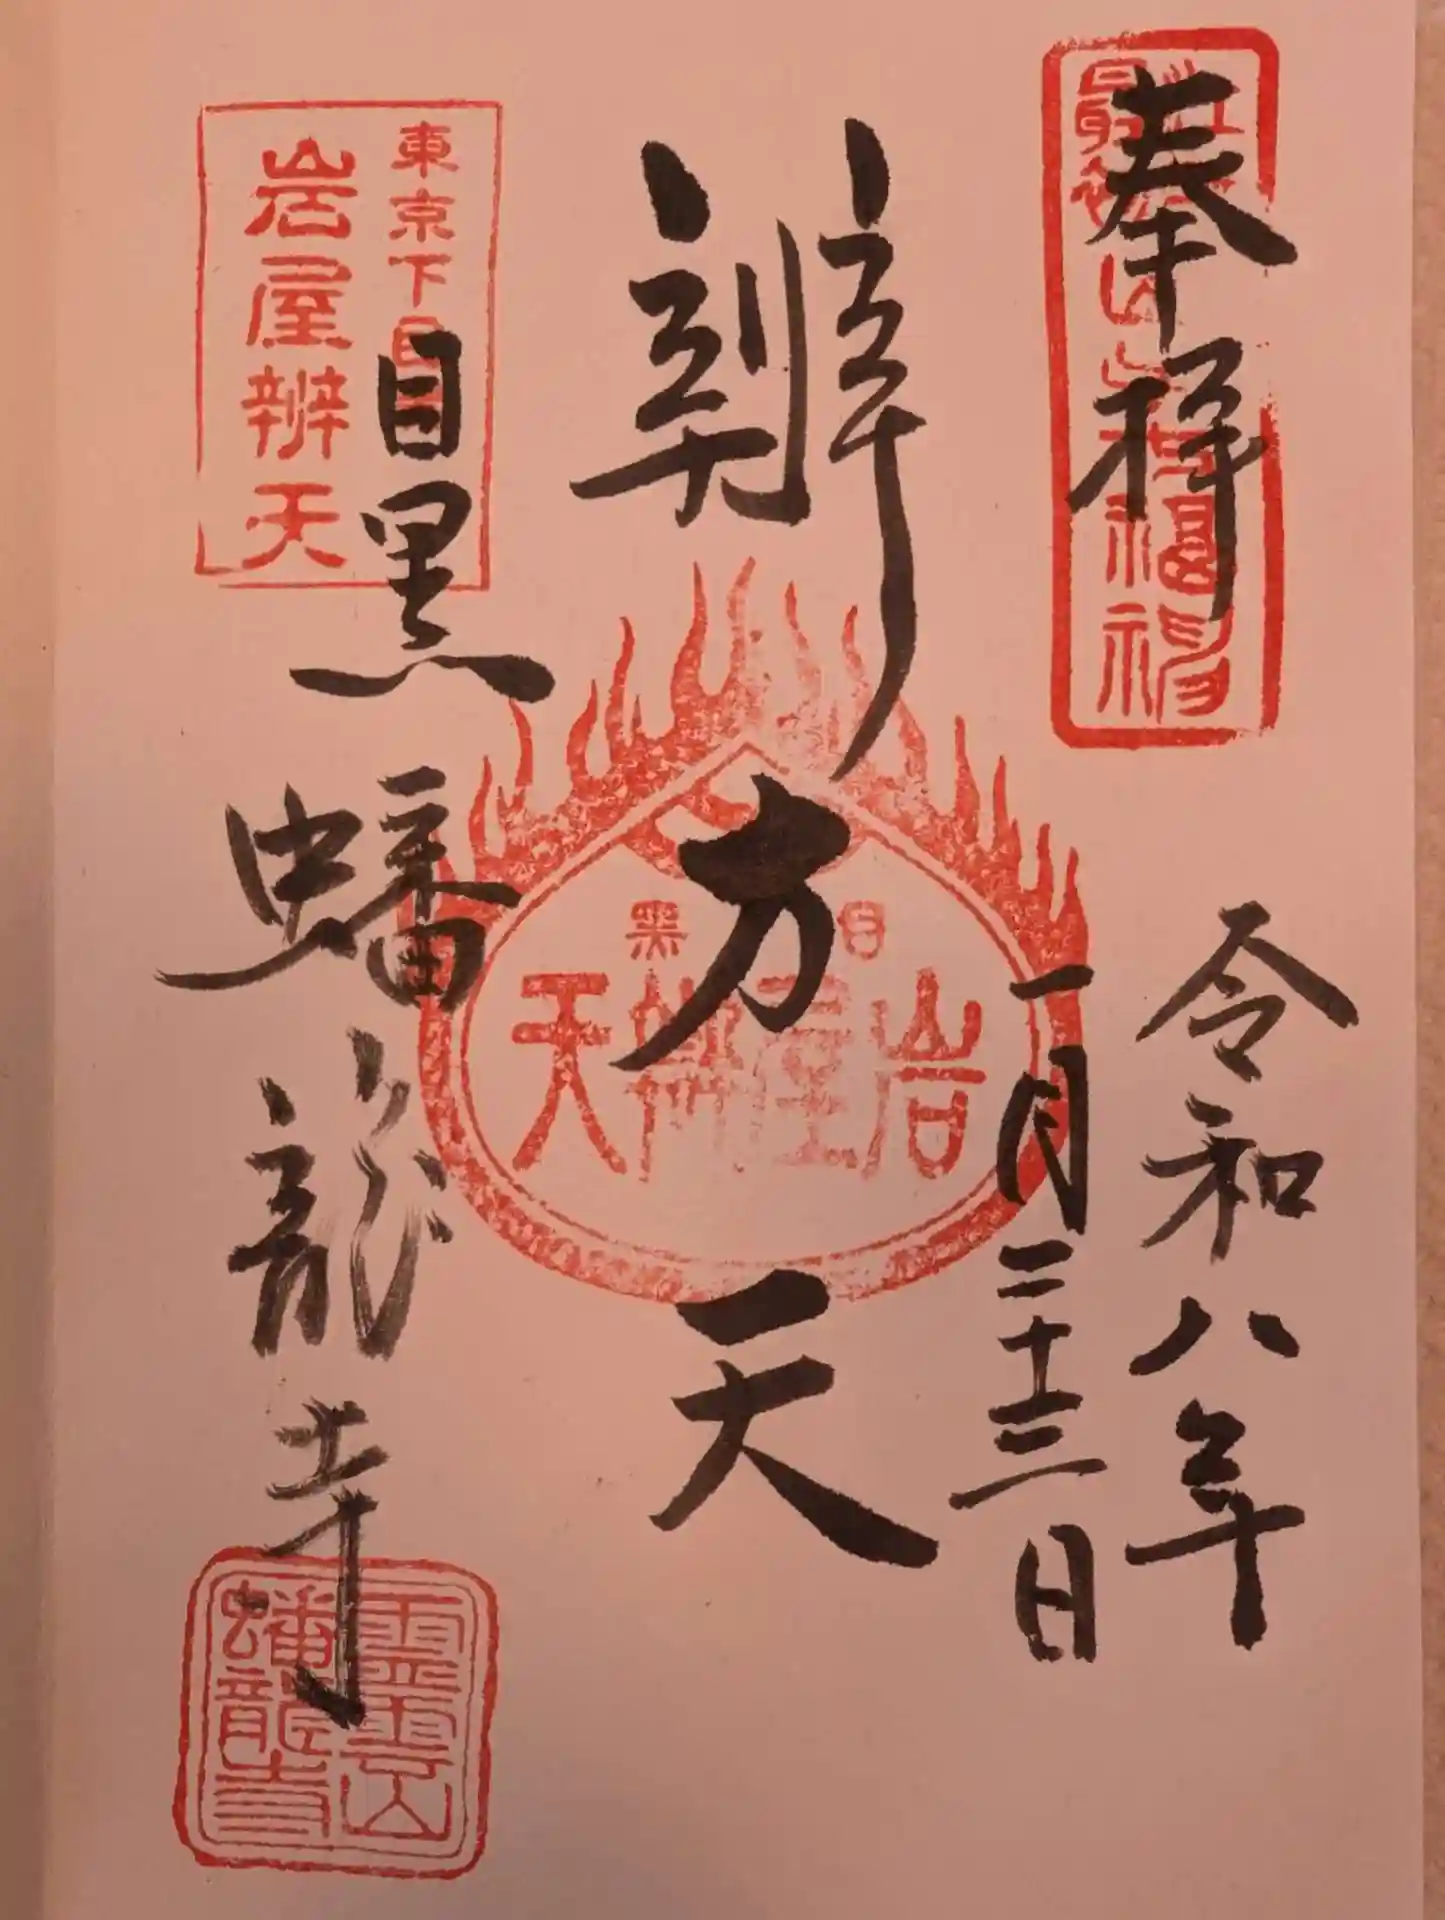 奉拝
江戸最初山手七福神
令和八年
一月二十三日
辨才天
目黒
岩屋辨天
東京下目黒
岩屋辨天
目黒 蟠龍寺
霊雲山
蟠龍寺